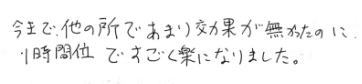 今まで、他の所であまり効果が無かったのに、
1時間位ですごく楽になりました。